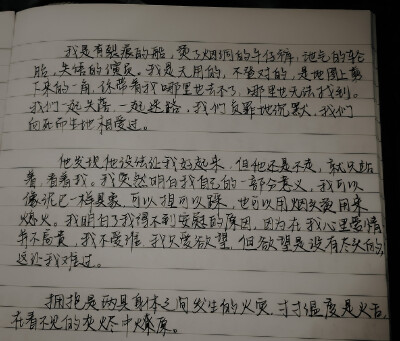 我是有裂痕的船,烫了烟洞的牛仔裤,泄气的轮
胎,失格的演员。我是无用的,不坚对的,是地图上剪
下来的一角,你带着我哪里也去不了,哪里也无法找到。
我们一起失落,一起迷路,我们负罪地沉默,我们
向死而生地相爱过。
他发现他没法让我好起来,但他还是不走,就只站
着,看着我。我突然明白我自己的一部分意义,我可以
像泥巴一样具象,可以捏可以踩,也可以用烟头烫用来
烧火。我明白了我得不到安慰的原因,因为在我心里爱情
并不高贵,我不爱谁,我只爱欲望,但欲望是没有尽头的,
这让我难过。
拥抱是两具身体之间发生的火灾,寸寸温度是火舌,
在看不见的灰烬中燎原。